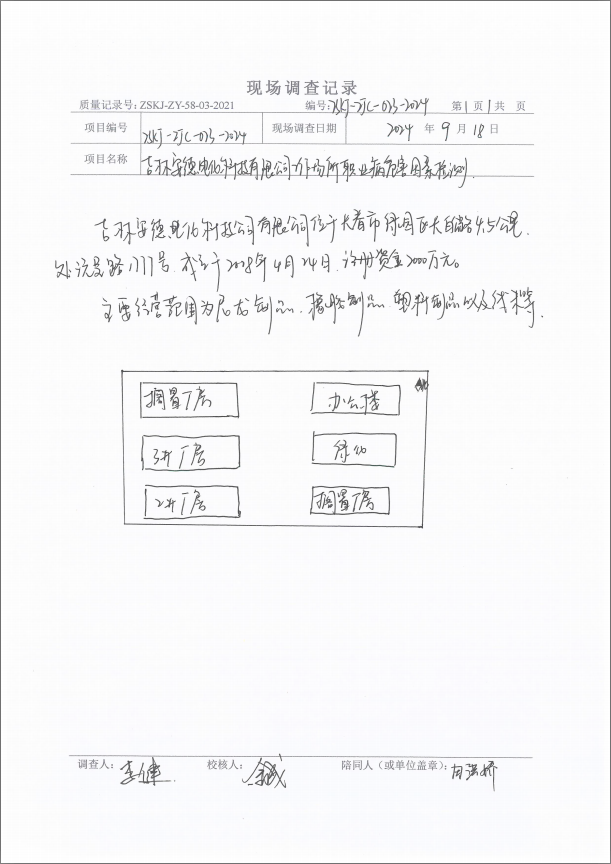 现场调查记录
质量记录号: ZSKJ-ZY-58-03-2021 编号: ZSKJ-ZJC-023-2024 第1页1共 页
项目编号 ZSKJ-ZJC-023-2024 现场调查日期 2024 年 9 月 18 日
项目名称 吉林安德电化科技有限公司工作场所职业病危害因素检测
吉林安德电化科技公司有限公司位于长春市绿园区长白路4.5公里
处 路1777号. 成立于2008年4月24日, 注册资金2000万元。
主要经营范围为尼龙制品、橡胶制品、塑料制品以及线束等.
北
搁置厂房 办公楼
3#厂房 绿化
2#厂房 搁置厂房
调查人: 校核人: 陪同人（或单位盖章）: